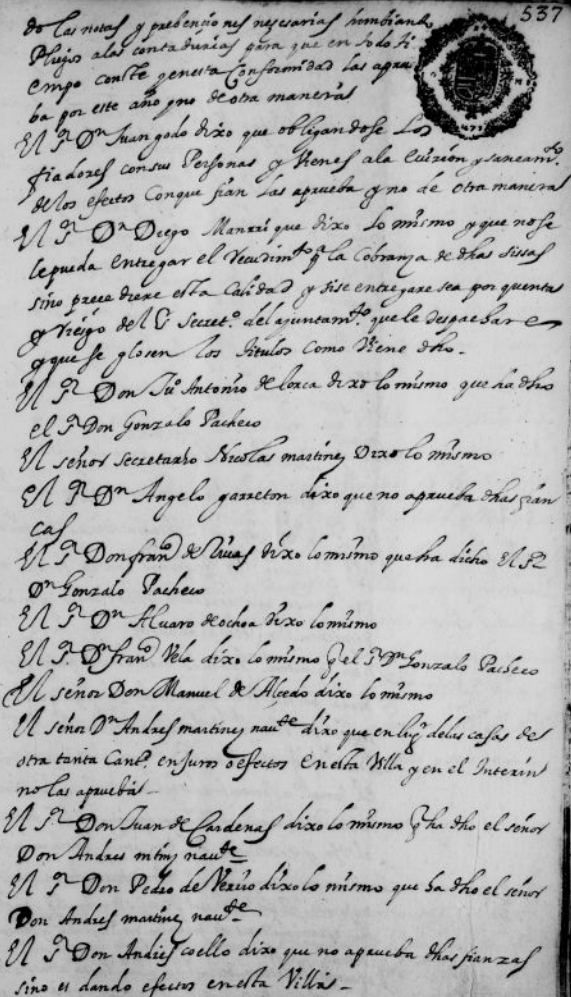 537
de las notas y prebenciones neçesarias himbiando
Plieģos alas contadurias para que en todo ti
empo conste y en esta Conformidad las aprue
ba por este año y no de otra manera
El Sr Dn Juan godo dixo que obligandose Los
fiadores con sus Personas y Vienes ala Euizion y saneamto
de los efectos Conque fian Las aprueba y no de otra manera
El Sr Dn Diego Manrrique dixo Lo mismo y que no se
le pueda entregar el Recudimto pa la Cobranza de dhas sissas
sino prece diere esta Calidad y si se entregare sea por quenta
y Riesgo del Sr Secreto del ajuntamto que le despachare
y que se glosen los titulos como Viene dho.
El Sr Don Juo Antonio de lorca dixo lo mismo que ha dho
el Sr Don Gonzalo Pacheco
El señor secretario Nicolas martinez Dixo lo mismo
El Sr Dn Angelo garreton dixo que no aprueba dhas fian
cas
El Sr Don franco de Riuas dixo lo mismo que ha dicho El Sr
Dn Gonzalo Pacheco
El Sr Dn Aluaro de ochoa dixo lo mismo
El Sr Dn franco Vela dixo lo mismo q el Sr Dn Gonzalo Pacheco
El señor Don Manuel de Alcedo dixo lo mismo
El señor Dn Andres martinez naute dixo que en lugr delas casas de
otra tanta Cantd en Juros o efectos en esta Villa y en el Interin
no las aprueba
El Sr Don Juan de Cardenas dixo lo mismo q ha dho el señor
Don Andres mrnz naute
El Sr Don Pedro de Veruio dixo lo mismo que ha dho el señor
Don Andres martinez naute
El Sr Don Andres coello dixo que no aprueba dhas fianzas
sino es dando efectos en esta Villa